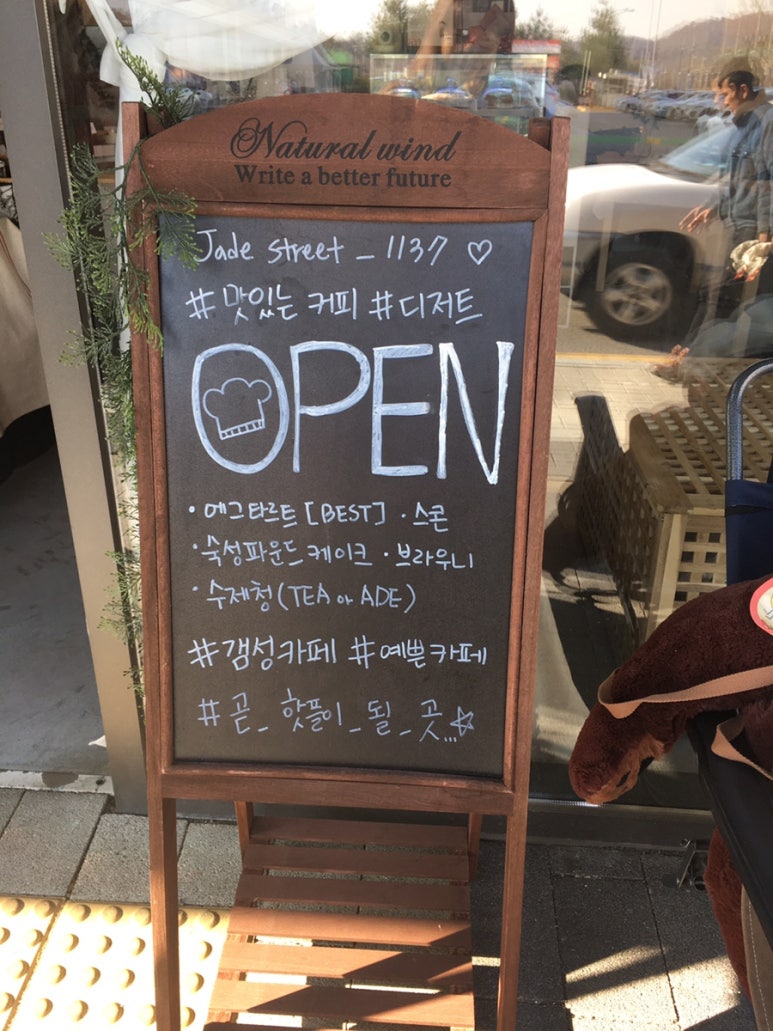 Natural wind
Write a better future
Jade street _ 1137 ♡
#맛있는 커피 #디저트
OPEN
· 에그타르트 [BEST] · 스콘
· 숙성파운드 케이크 · 브라우니
· 수제청 (TEA or ADE)
#갬성카페 #예쁜카페
#곧_핫플이_될_곳...☆